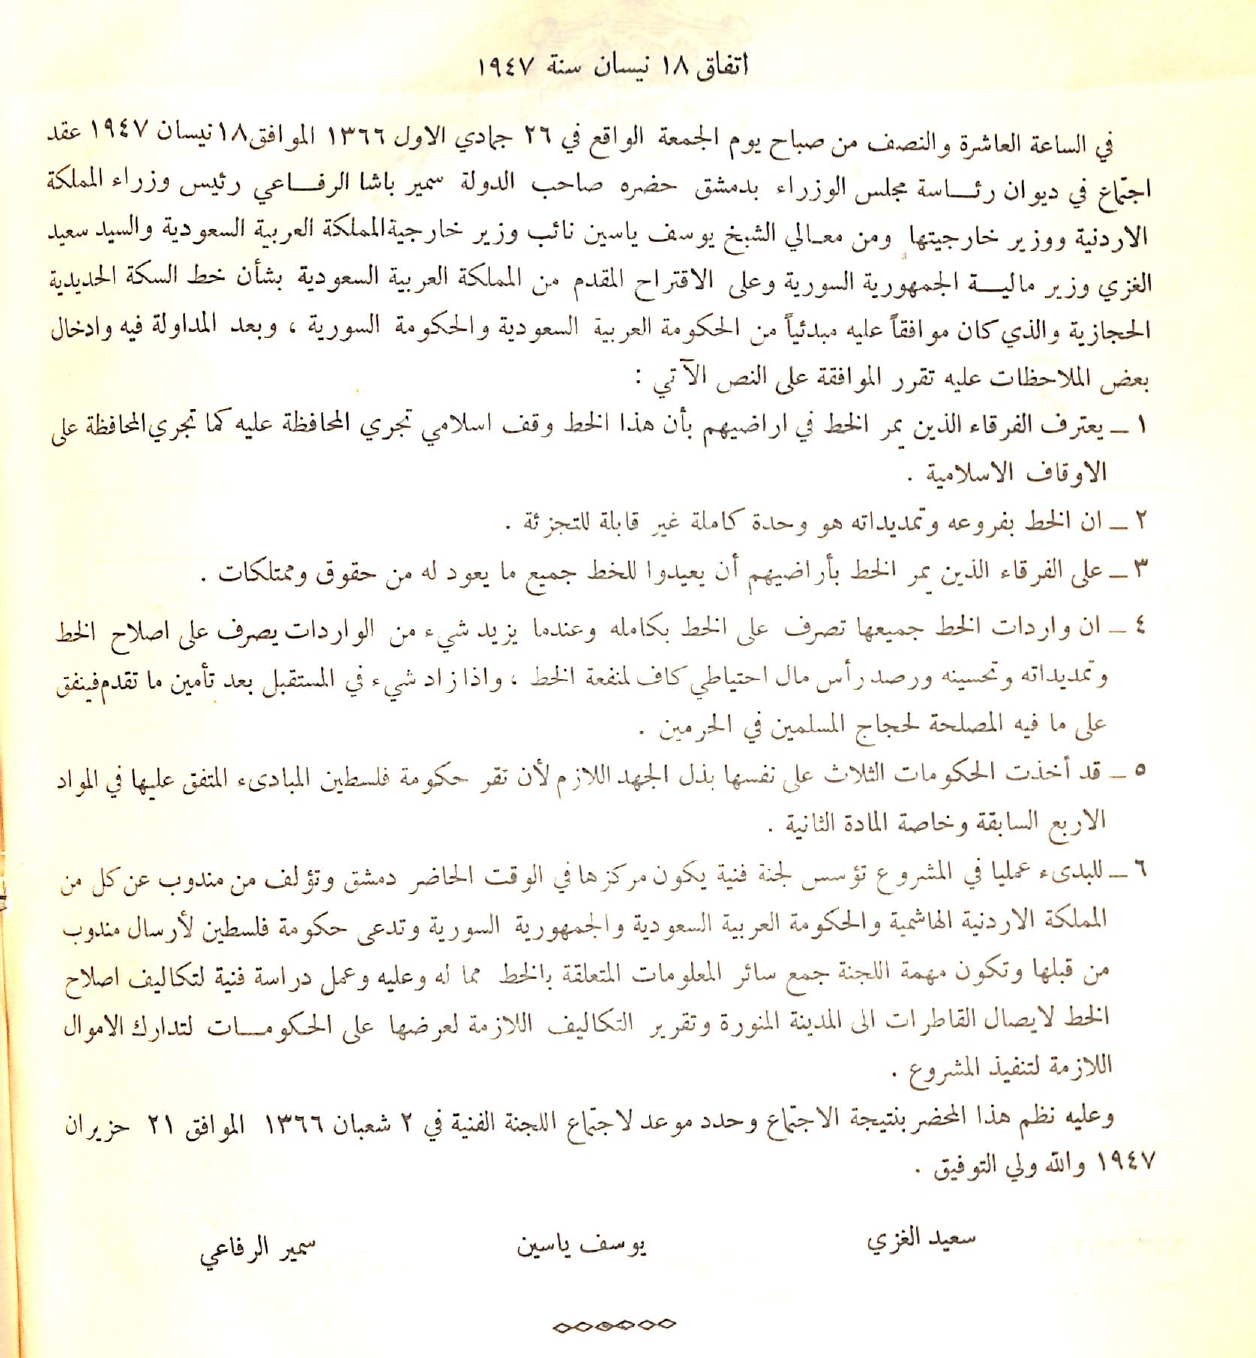 اتفاق ١٨ نيسان سنة ١٩٤٧
في الساعة العاشرة والنصف من صباح يوم الجمعة الواقع في ٢٦ جمادي الاول ١٣٦٦ الموافق ١٨ نيسان ١٩٤٧ عقد
اجتماع في ديوان رئـــاسة مجلس الوزراء بدمشق حضره صاحب الدولة سمير باشا الرفـــاعي رئيس وزراء المملكة
الاردنية ووزير خارجيتها ومن معـالي الشيخ يوسف ياسين نائب وزير خارجية المملكة العربية السعودية والسيد سعيد
الغزي وزير ماليـــة الجمهورية السورية وعلى الاقتراح المقدم من المملكة العربية السعودية بشأن خط السكة الحديدية
الحجازية والذي كان موافقاً عليه مبدئياً من الحكومة العربية السعودية والحكومة السورية ، وبعد المداولة فيه وادخال
بعض الملاحظات عليه تقرر الموافقة على النص الآتي :
١ ــ يعترف الفرقاء الذين يمر الخط في اراضيهم بأن هذا الخط وقف اسلامي تجري المحافظة عليه كما تجري المحافظة على
الاوقاف الاسلامية .
٢ ــ ان الخط بفروعه وتمديداته هو وحدة كاملة غير قابلة للتجزئة .
٣ ــ على الفرقاء الذين يمر الخط بأراضيهم أن يعيدوا للخط جميع ما يعود له من حقوق وممتلكات .
٤ ــ ان واردات الخط جميعها تصرف على الخط بكامله وعندما يزيد شيء من الواردات يصرف على اصلاح الخط
وتمديداته وتحسينه ورصد رأس مال احتياطي كاف لمنفعة الخط ، واذا زاد شيء في المستقبل بعد تأمين ما تقدم فينفق
على ما فيه المصلحة لحجاج المسلمين في الحرمين .
٥ ــ قد أخذت الحكومات الثلاث على نفسها بذل الجهد اللازم لأن تقر حكومة فلسطين المبادىء المتفق عليها في المواد
الاربع السابقة وخاصة المادة الثانية .
٦ ــ للبدىء عمليا في المشروع تؤسس لجنة فنية يكون مركزها في الوقت الحاضر دمشق وتؤلف من مندوب عن كل من
المملكة الاردنية الهاشمية والحكومة العربية السعودية والجمهورية السورية وتدعى حكومة فلسطين لأرسال مندوب
من قبلها وتكون مهمة اللجنة جمع سائر المعلومات المتعلقة بالخط مما له وعليه وعمل دراسة فنية لتكاليف اصلاح
الخط لايصال القاطرات الى المدينة المنورة وتقرير التكاليف اللازمة لعرضها على الحكومـــات لتدارك الاموال
اللازمة لتنفيذ المشروع .
وعليه نظم هذا المحضر بنتيجة الاجتماع وحدد موعد لاجتماع اللجنة الفنية في ٢ شعبان ١٣٦٦ الموافق ٢١ حزيران
١٩٤٧ والله ولي التوفيق .
سعيد الغزي يوسف ياسين سمير الرفاعي